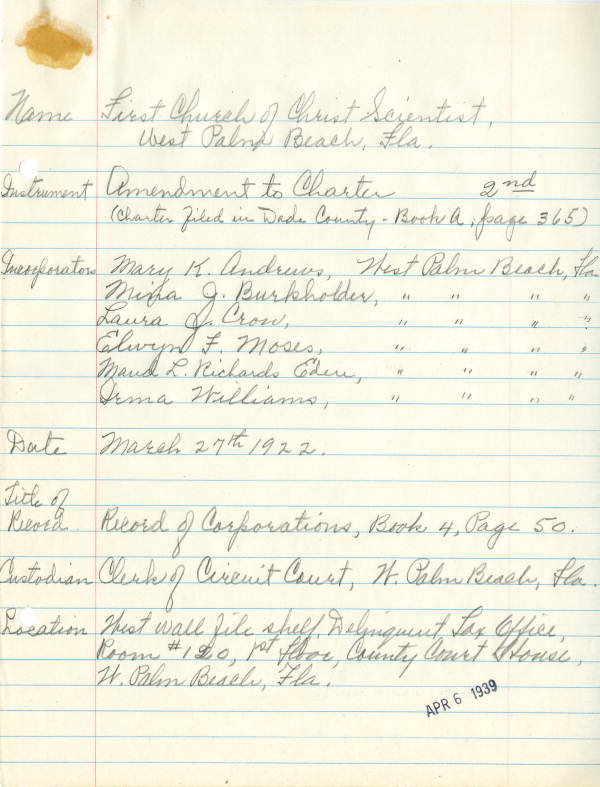 Name First Church of Christ Scientist,
West Palm Beach, Fla.
Instrument Amendment to Charter 2nd
(Charter filed in Dade County - Book A, page 365)
Incorporators Mary K. Andrews, West Palm Beach, Fla
Mina J. Burkholder, " " " "
Laura J. Crow, " " " "
Elwyn F. Moses, " " " "
Maud L. Richards Eden, " " " "
Irma Williams, " " " "
Date March 27th 1922.
Title of
Record Record of Corporations, Book 4, Page 50.
Custodian Clerk of Circuit Court, W. Palm Beach, Fla.
Location West wall file shelf, Delinquent Tax Office,
Room #120, 1st floor, County Court House,
W. Palm Beach, Fla.
APR 6 1939